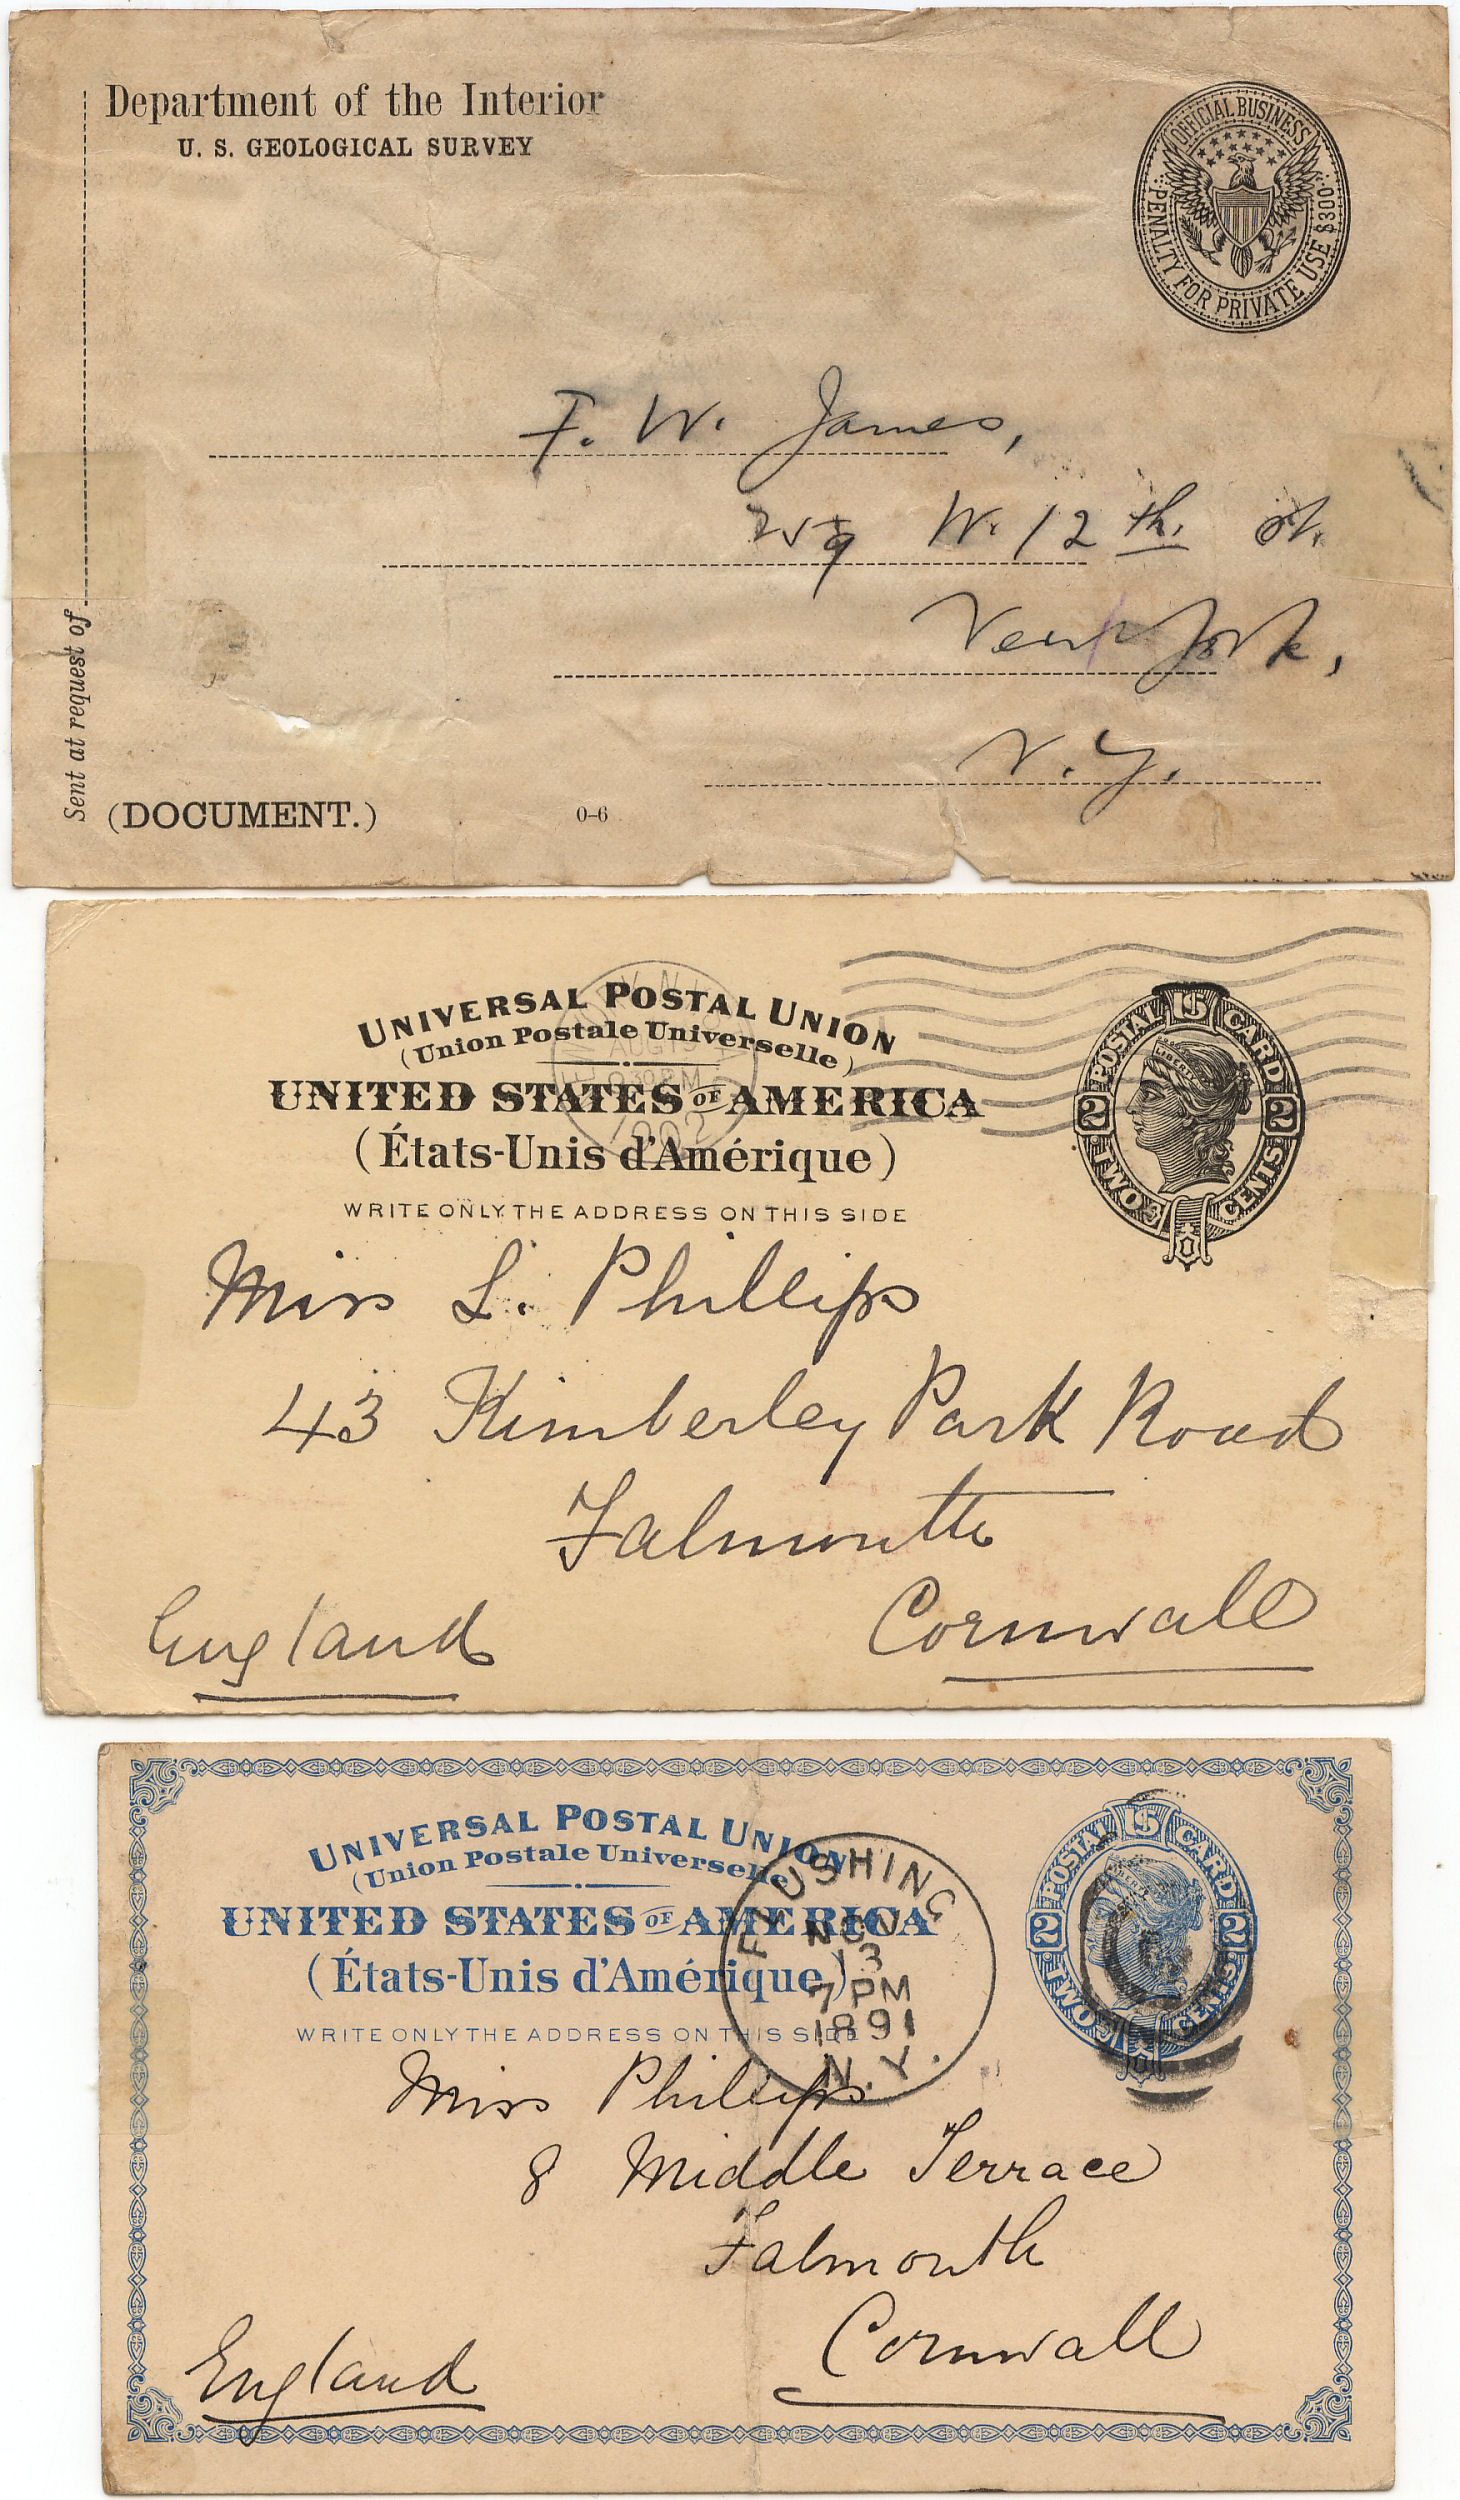 Department of the Interior
U. S. GEOLOGICAL SURVEY
OFFICIAL BUSINESS
PENALTY FOR PRIVATE USE $300
F. W. James,
259 W. 12th. St.
New York,
N. Y.
Sent at request of
(DOCUMENT.)
0-6
UNIVERSAL POSTAL UNION
(Union Postale Universelle)
UNITED STATES OF AMERICA
(États-Unis d'Amérique)
WRITE ONLY THE ADDRESS ON THIS SIDE
AUG 13
30 PM
1902
U.S. POSTAL CARD
LIBERTY
2 2
TWO CENTS
Miss L. Phillips
43 Kimberley Park Road
Falmouth
Cornwall
England
UNIVERSAL POSTAL UNION
(Union Postale Universelle)
UNITED STATES OF AMERICA
(États-Unis d'Amérique)
WRITE ONLY THE ADDRESS ON THIS SIDE
FLUSHING
NOV
13
7 PM
1891
N.Y.
U.S. POSTAL CARD
2 2
TWO CENTS
Miss Phillips
8 Middle Terrace
Falmouth
Cornwall
England